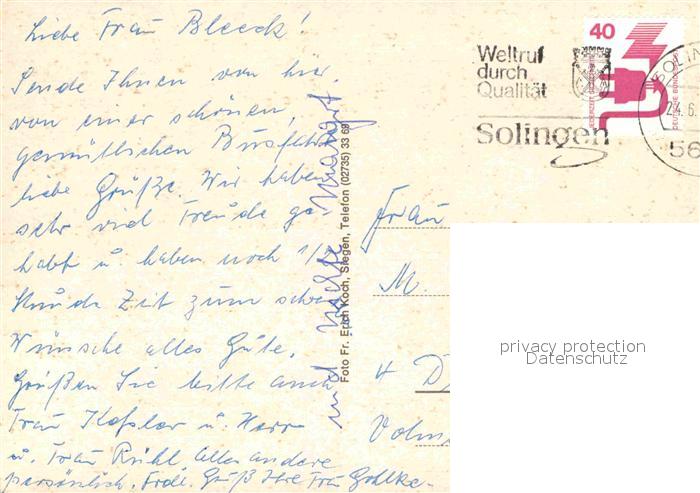 Liebe Frau Bleeck!
Sende Ihnen von hier
von einer schönen,
gemütlichen Busfahrt
liebe Grüße. Wir haben
sehr viel Freude ge-
habt u. haben noch 1/2
Stunde Zeit zum schrei
Wünsche alles Gute.
Grüßen Sie bitte auch
Frau Keßler u. Herrn
u. Frau Rühl alles andere
persönlich. Frdl. Gruß Ihre Frau Gohlke-
und
Foto Fr. Erich Koch, Siegen, Telefon (02735) 33 69
Weltruf
durch
Qualität
Solingen
40
JEDERZEIT SICHERHEIT
DEUTSCHE BUNDESPOST
SOLIN
24.6.
56
Frau
M.
4 D
Volm
privacy protection
Datenschutz